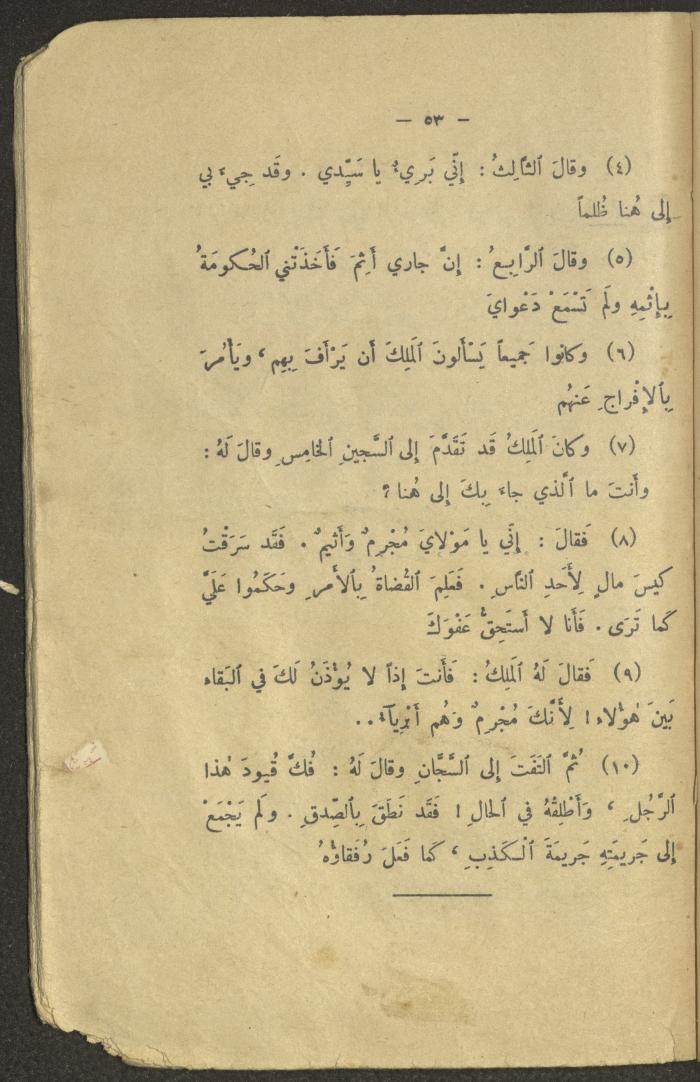 — ٥٣ —
(٤) وقالَ ٱلثَّالِثُ : إِنِّي بَرِيءٌ يا سَيِّدي . وقَد جِيءَ بي
إِلى هُنا ظُلماً
(٥) وقالَ ٱلرَّابِعُ : إِنَّ جاري أَثِمَ فَأَخَذَتْني ٱلحُكومَةُ
بِإِثْمِهِ ولَم تَسْمَعْ دَعْوايَ
(٦) وكانوا جَميعاً يَسْأَلونَ ٱلمَلِكَ أَن يَرْأَفَ بِهِم ، ويَأْمُرَ
بِٱلإِفْراجِ عَنهُم
(٧) وكانَ ٱلمَلِكُ قَد تَقَدَّمَ إِلى ٱلسَّجينِ ٱلخامِسِ وقالَ لَهُ :
وأَنتَ ما ٱلَّذي جاءَ بِكَ إِلى هُنا ؟
(٨) فَقالَ : إِنِّي يا مَوْلايَ مُجْرِمٌ وَأَثيمٌ . فَقَد سَرَقْتُ
كيسَ مالٍ لِأَحَدِ ٱلنَّاسِ . فَعَلِمَ ٱلقُضاةُ بِٱلأَمرِ وحَكَمُوا عَلَيَّ
كَما تَرَى . فَأَنا لا أَستَحِقُّ عَفْوَكَ
(٩) فَقالَ لَهُ ٱلمَلِكُ : فَأَنتَ إِذاً لا يُؤْذَنُ لَكَ في ٱلبَقاء
بَينَ هٰؤُلاء ! لِأَنَّكَ مُجْرِمٌ وَهُم أَبْرِيآءُ..
(١٠) ثُمَّ ٱلتَفَتَ إِلى ٱلسَّجَّانِ وقالَ لَهُ : فُكَّ قُيودَ هٰذا
ٱلرَّجُلِ ، وَأَطْلِقْهُ في ٱلحالِ ! فَقَد نَطَقَ بِٱلصِّدقِ . ولَم يَجْمَعْ
إِلى جَريمَتِهِ جَريمَةَ ٱلْكَذِبِ ، كَما فَعَلَ رُفَقاؤُهُ